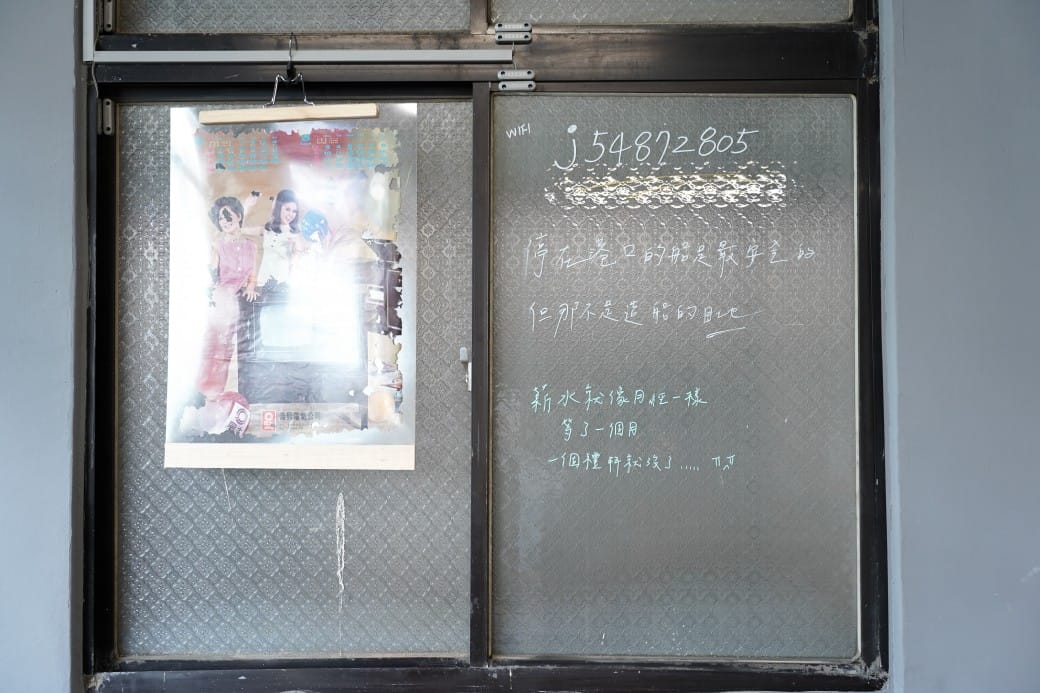 WIFI
j54872805
停在港口的船是最安全的
但那不是造船的目地
薪水就像月經一樣
等了一個月
一個禮拜就沒了..... ㄒ^ㄒ